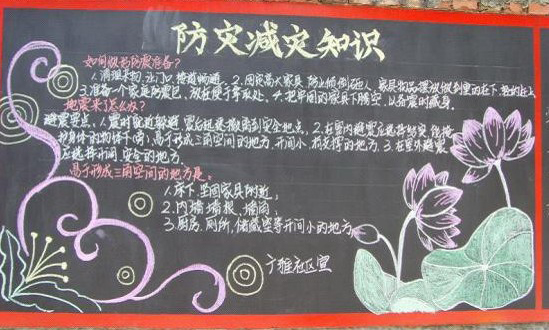 防灾减灾知识
如何做好防震准备?
1.清理杂物,让门口、楼道畅通。2.固定高大家具,防止倾倒砸人,家具物品摆放做到重的在下,轻的在上
3.准备一个家庭防震包,放在便于拿取处。4.把牢固的家具下腾空,以备震时藏身。
地震来了怎么办?
避震要点:1.震时就近躲避,震后迅速撤离到安全地点,2.在室内避震应选择结实、能掩
护身体的物体下(旁)、易于形成三角空间的地方,开间小、有支撑的地方,3.在室外避震
应选择开阔、安全的地方。
易于形成三角空间的地方是:
1.床下、坚固家具附近;
2.内墙墙根、墙角;
3.厨房、厕所、储藏室等开间小的地方。
社区宣